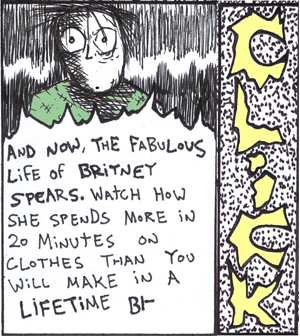 AND NOW, THE FABULOUS
LIFE OF BRITNEY
SPEARS. WATCH HOW
SHE SPENDS MORE IN
20 MINUTES ON
CLOTHES THAN YOU
WILL MAKE IN A
LIFETIME BI-
CLICK